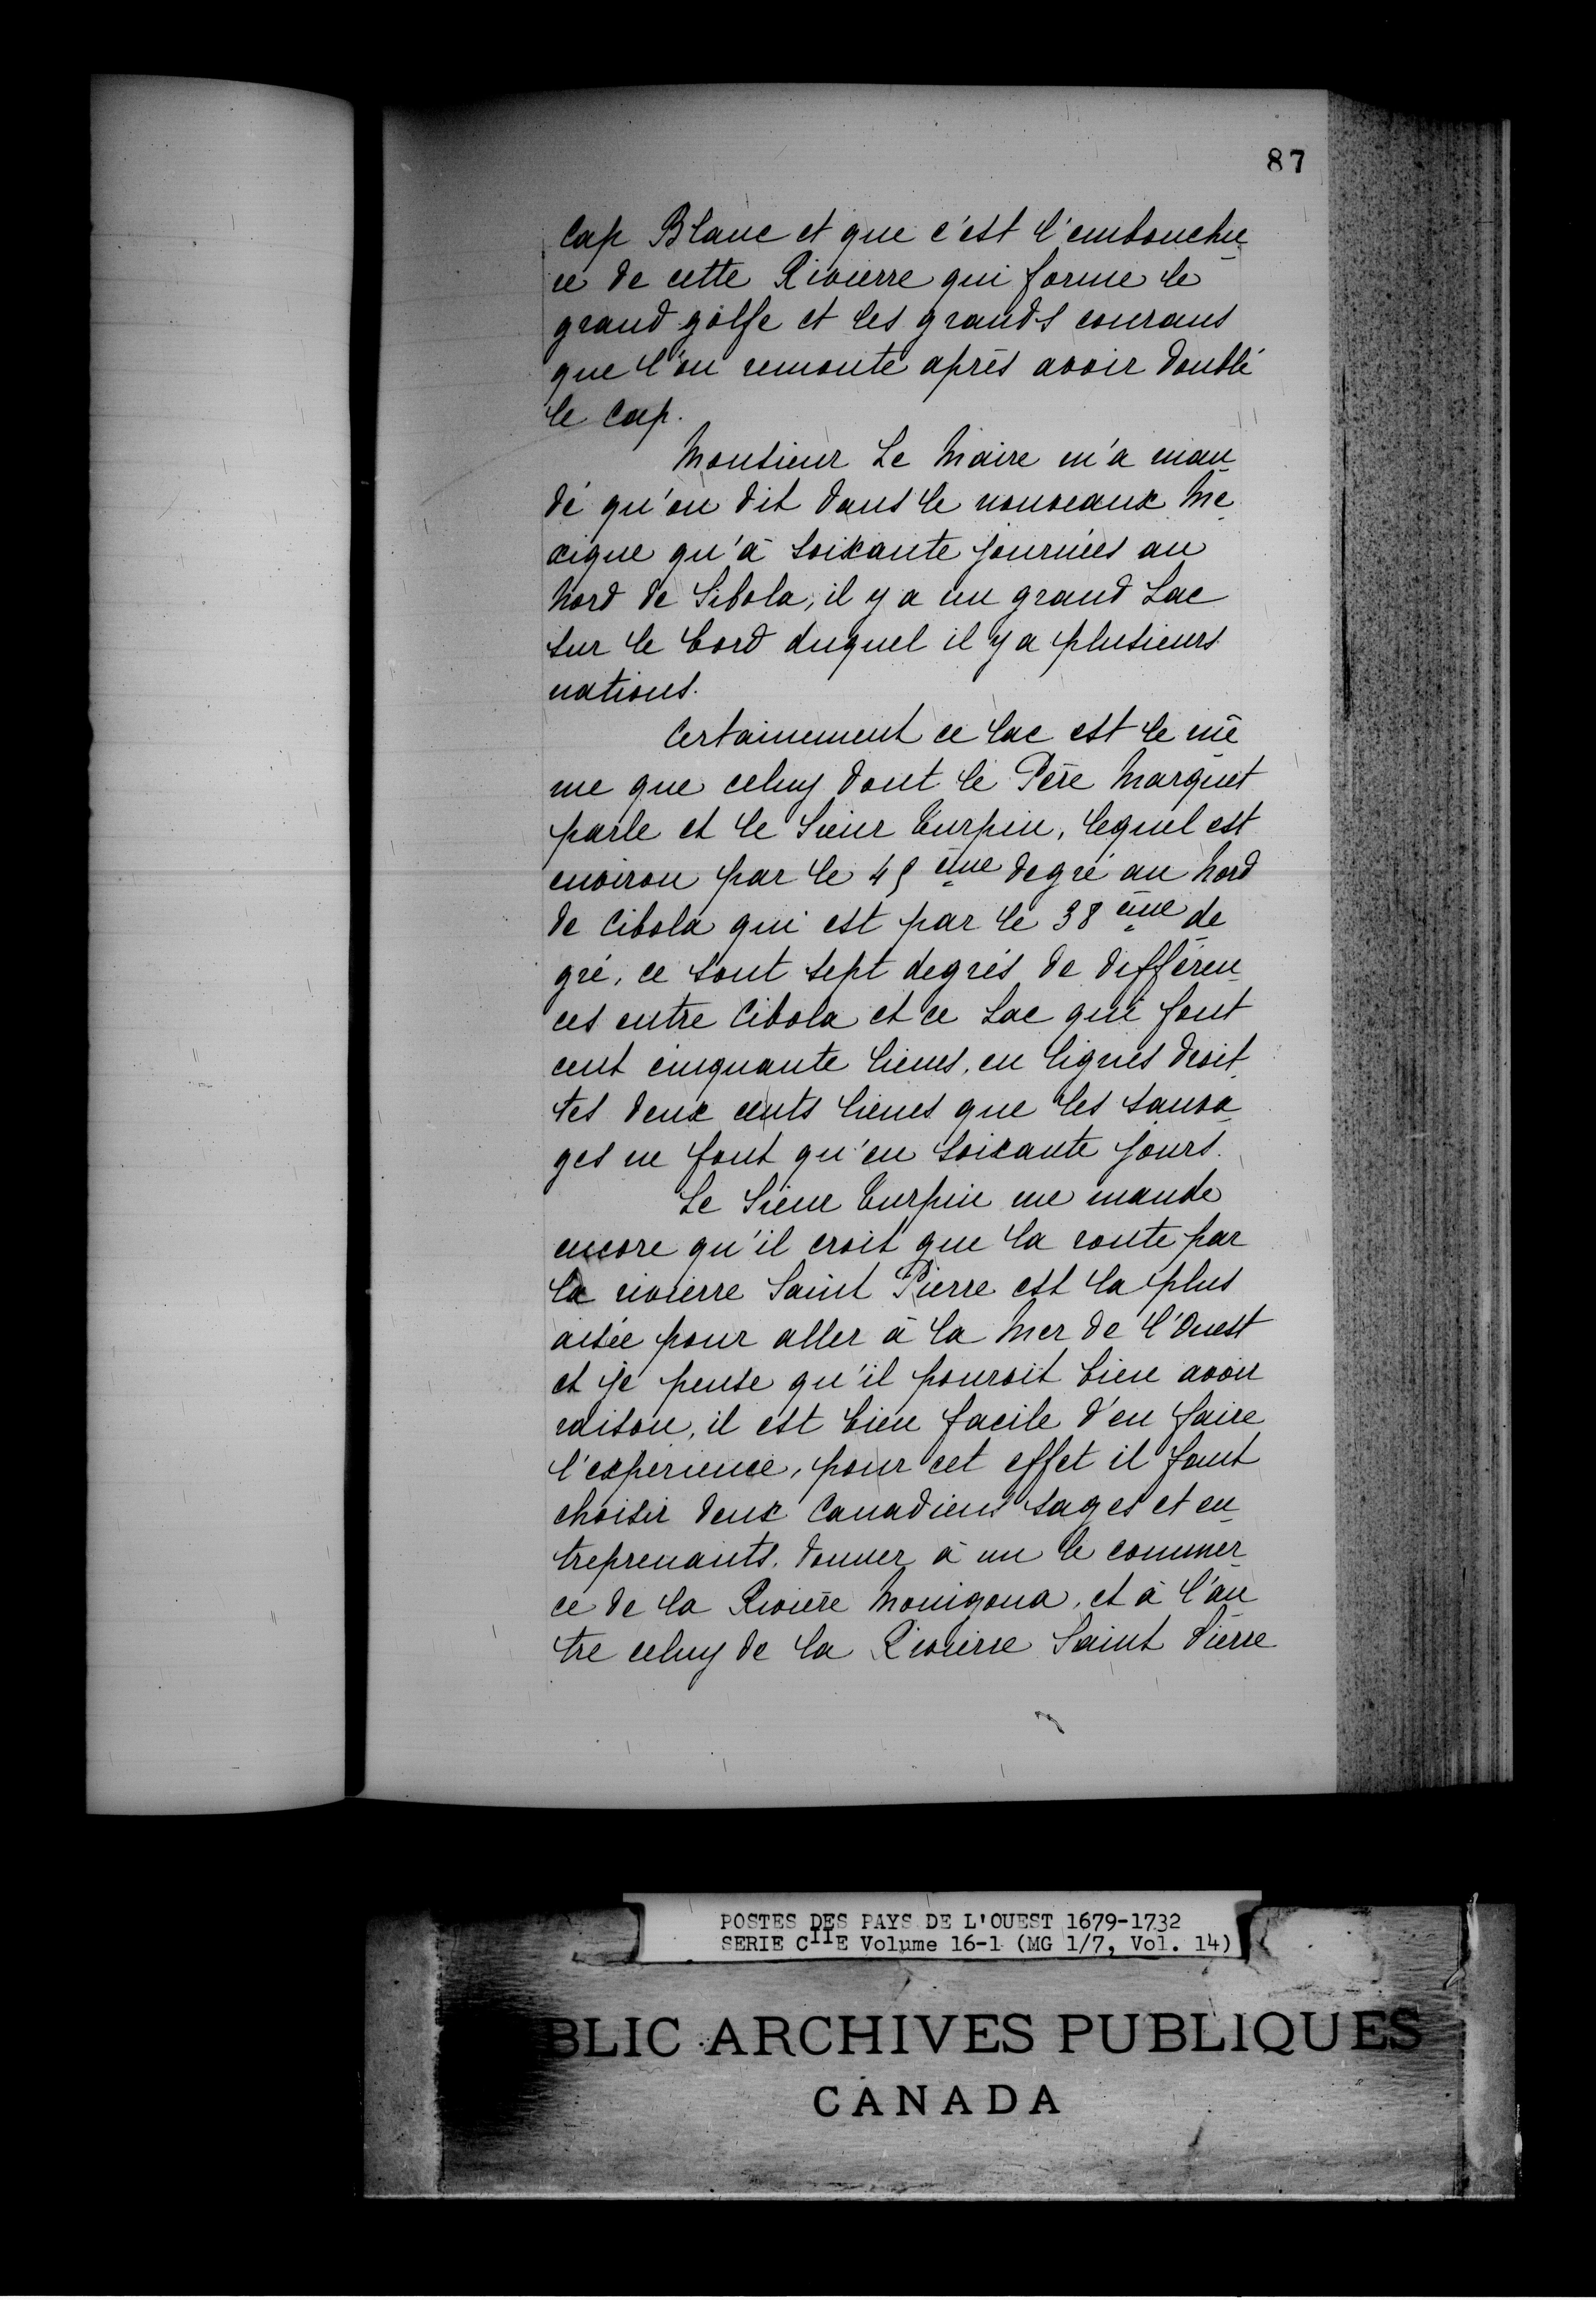 87
Cap Blanc et que c'est l'embouchu
re de cette Rivierre qui forme le
grand golfe et les grands courans
que l'on remonte après avoir doublé
le Cap.
Monsieur Le Maire m'a man
dé qu'on dit dans le nouveaux Me
xique qu'à soixante journées au
Nord de Sibola, il y a un grand Lac
sur le bord duquel il y a plusieurs
nations.
Certainement ce lac est le mê
me que celuy dont le Père Marquet
parle et le Sieur Turpin, lequel est
environ par le 45 ème degré au Nord
de Cibola qui est par le 38 ème de
gré, ce sont sept degrés de différen
ces entre Cibola et ce Lac qui font
cent cinquante lieues, en lignes droit
tes deux cents lieues que les sauva
ges ne font qu'en soixante jours.
Le Sieur Turpin me mande
encore qu'il croit que la route par
la rivierre Saint Pierre est la plus
aisée pour aller à la Mer de l'Ouest
et je pense qu'il pouroit bien avoir
raison, il est bien facile d'en faire
l'expérience, pour cet effet il faut
choisir deux Canadiens sages et en
treprenants, donner à un le commer
ce de la Rivière Mouigona, et à l'au
tre celuy de la Rivierre Saint Pierre
POSTES DES PAYS DE L'OUEST 1679-1732
SERIE CIIE Volume 16-1 (MG 1/7, Vol. 14)
BLIC ARCHIVES PUBLIQUES
CANADA